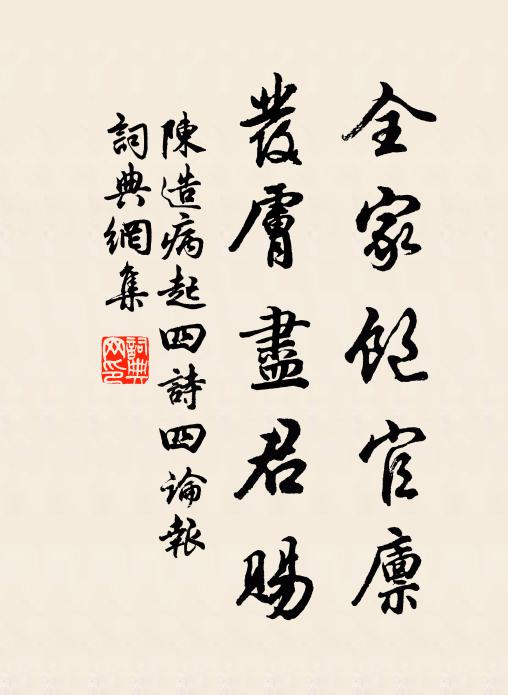 全家飽官廩
發膚盡君賜
陳造病起四詩四論報
詞典網集
詞典
网印